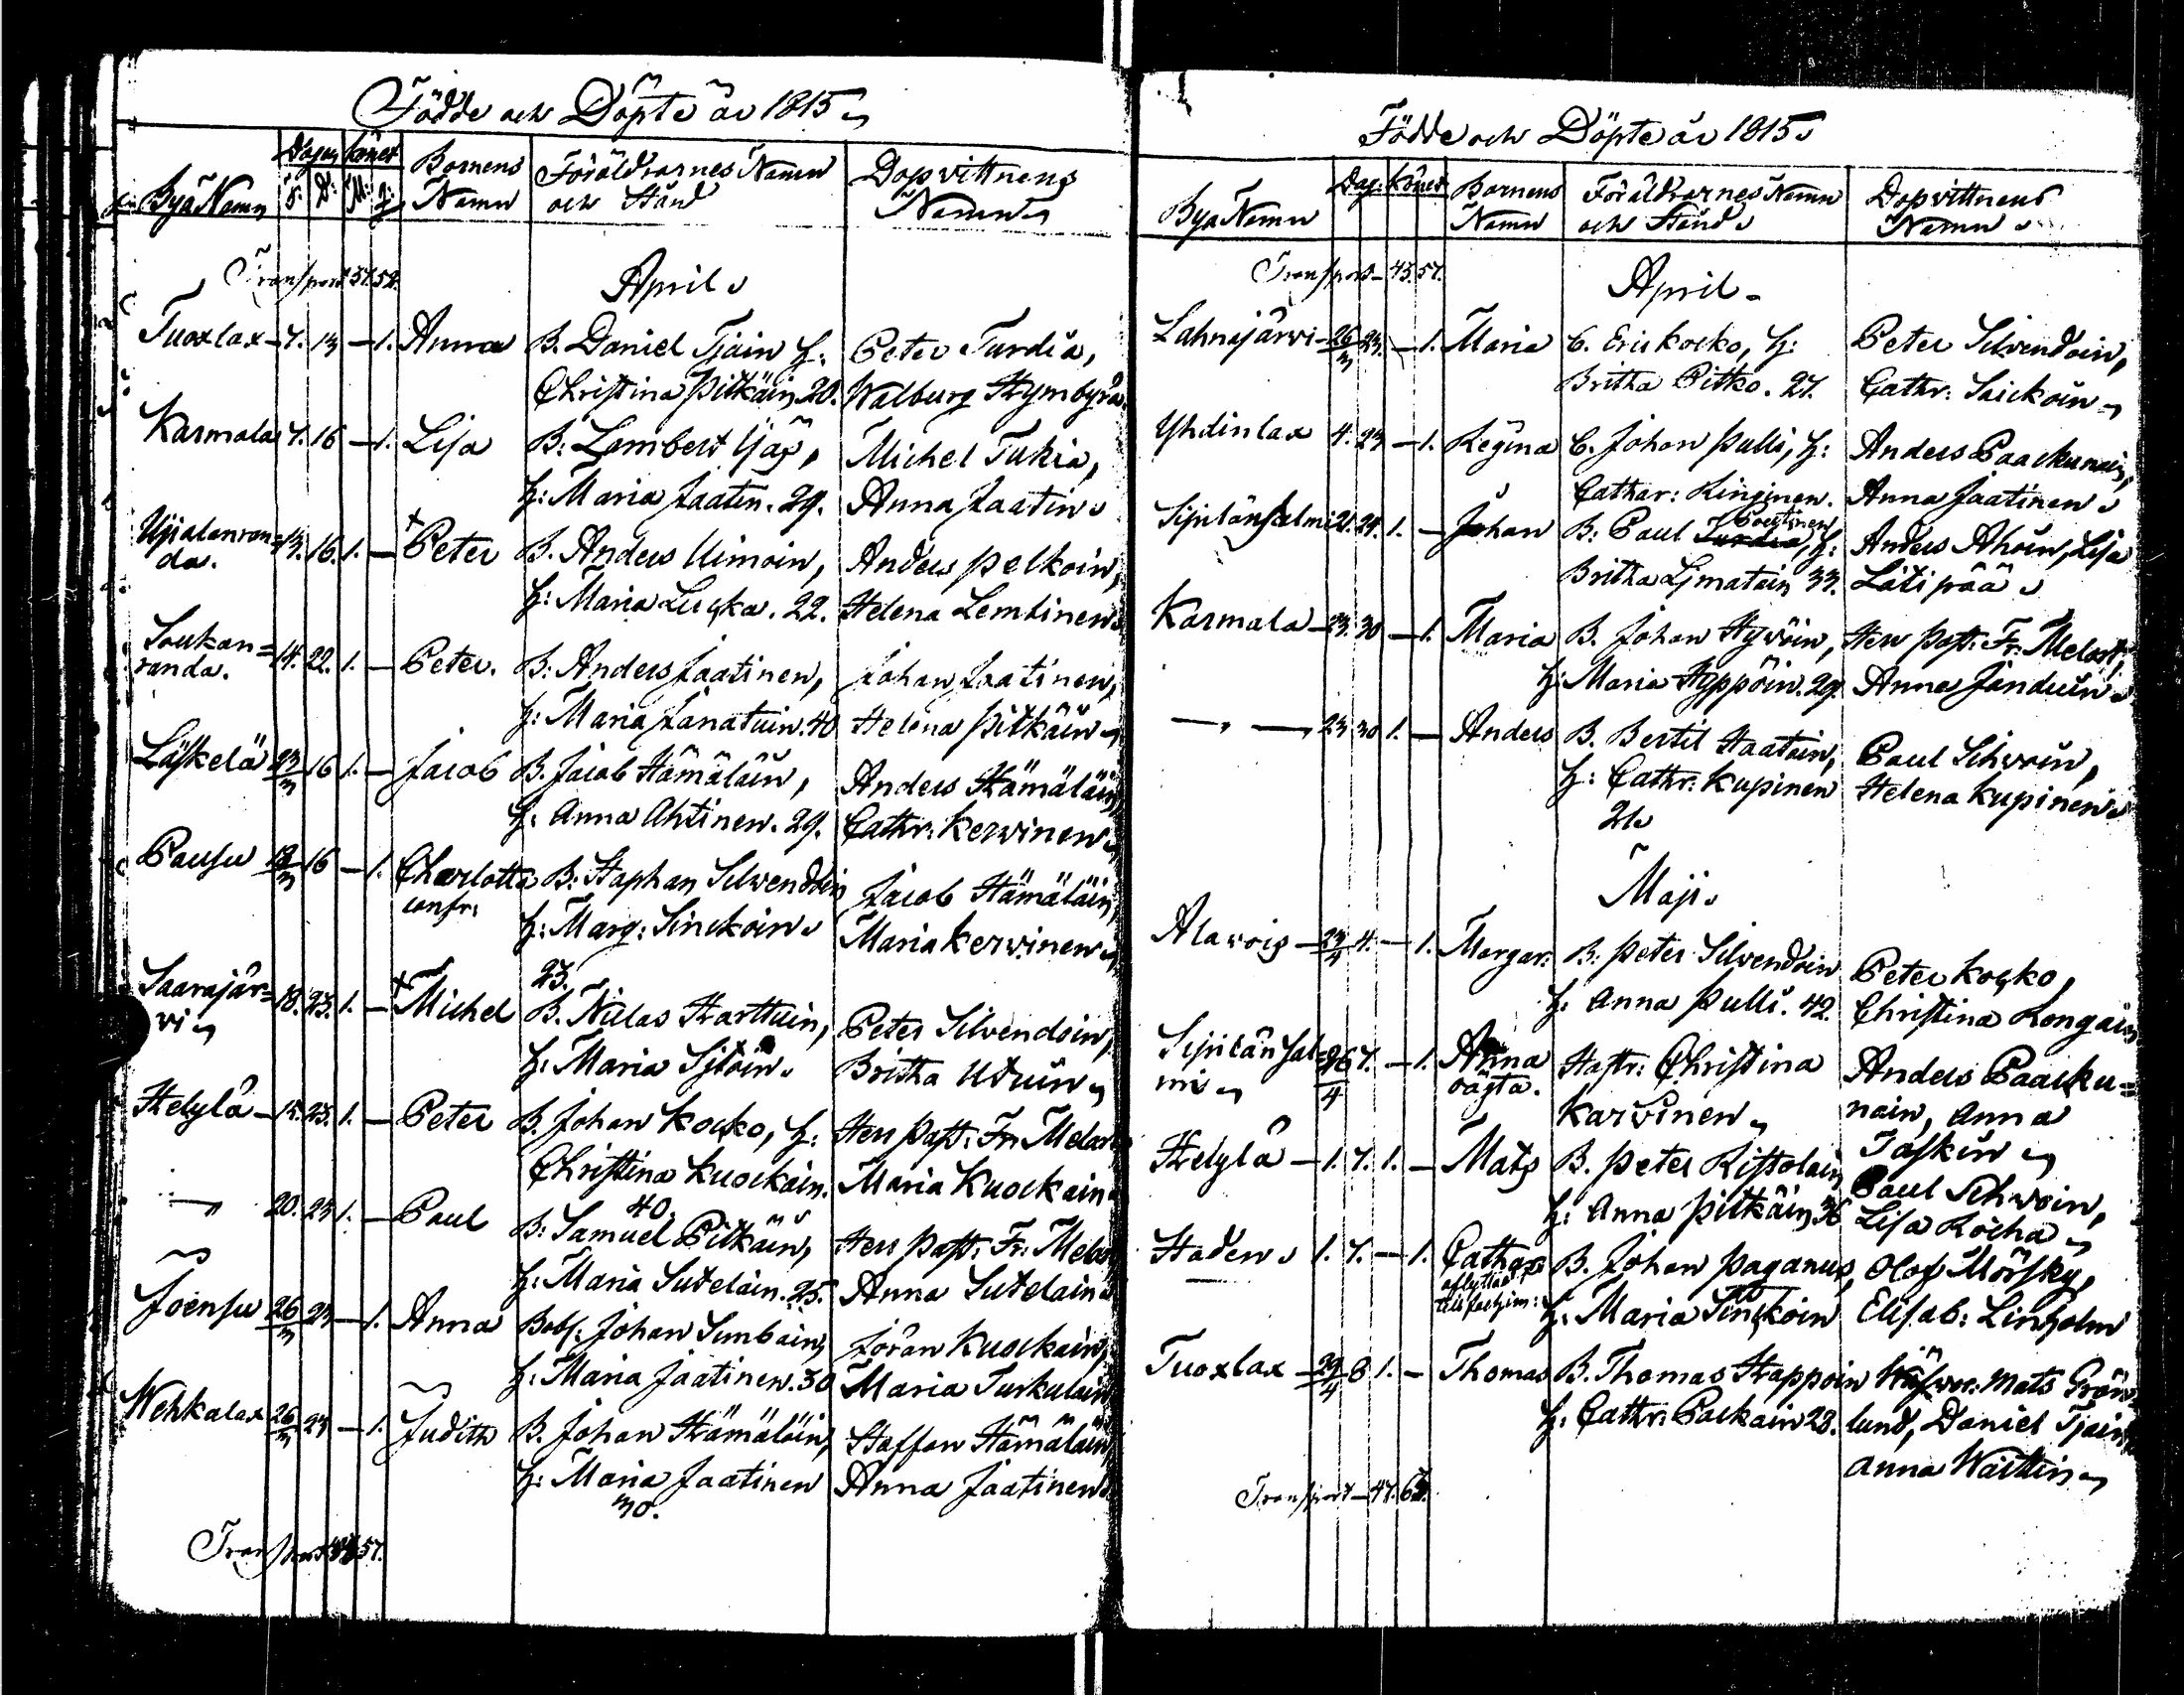 Födde och Döpte år 1815
Bya Namn
Dagen
Könet
Barnens
Namn
Föräldrarnes Namn
och Stånd
Dopvittnens
Namn
F:
D:
M:
Q:
Transport 37. 52.
April
Tuoxlax – 7. 13 – 1. Anna
B. Daniel Tjäin H:
Christina Pitkäin 20.
Peter Turdia,
Walburg Hymbyrä
Karmala 7. 16 – 1. Lisa
B: Lambert Ijäs,
H: Maria Jaatin. 29.
Michel Tukia,
Anna Jaatin
Ujialanran=
da.
13. 16. 1. – Peter
B. Anders Uimoin,
H: Maria Lucka. 22.
Anders Pelkoin,
Helena Lemtinen
Soukan=
randa.
14. 22. 1. – Peter.
B: Anders Jaatinen,
H: Maria Janatuin. 40
Johan Jaatinen,
Helena Pitkäin
Läskelä 23/3 16 1. – Jacob
B. Jacob Hämäläin,
H. Anna Ahtinen. 29.
Anders Hämäläin
Cathr: Kerwinen
Pausu 19/3 16 – 1. Charlotta
confr:
B: Staphan Silwendoin
H: Marg: Sinckoin
23.
Jacob Hämäläin,
Maria Kerwinen
Saarajär=
vi
18. 23. 1. – Michel
B. Niclas Harttuin,
H: Maria Sitoin
Peter Silvendoin,
Britha Uduin
Helylä – 15. 23. 1. – Peter
B. Johan Kocko, H:
Christina Kuockain.
40.
Herr Past: Fr: Melart
Maria Kuockain
– " – 20. 23 1. – Paul
B: Samuel Pitkäin,
H: Maria Sutelain. 25.
Herr Past: Fr: Melart
Anna Sutelain
Joensu 26/3 23 – 1. Anna
Bobs: Johan Simbain,
H: Maria Jaatinen. 30
Jöran Kuockain,
Maria Turkulain
Wehkalax 26/3 23 – 1. Judith
B. Johan Hämäläin,
H: Maria Jaatinen
30.
Staffan Hämäläin
Anna Jaatinen
Transport 57.
Födde och Döpte år 1815
Bya Namn
Dag:
Könet
Barnens
Namn
Föräldrarnes Namn
och Stånd
Dopvittnens
Namn
Transport – 43. 57.
April
Lahnajärwi – 26/3 23. – 1. Maria
B. Eric Kocko, H:
Britha Pitko. 27.
Peter Silvendoin,
Cathr: Saickoin
Yhdinlax 4. 23 – 1. Regina
B. Johan Pulli, H:
Cathar: Kinginen.
Anders Paackunain,
Anna Jaatinen
Sipilänsalmi 21. 24. 1. – Johan
B: Paul Poutinen, H:
Britha Ijmatain 33.
Anders Ahoin, Lisa
Lätipää
Karmala – 23. 30 – 1. Maria
B. Johan Hywöin,
H: Maria Hyppöin. 29.
Herr Past: Fr: Melart,
Anna Janduin
– " – 23 30 1. – Anders
B. Bertil Haatain,
H: Cathr: Kupinen
26
Paul Sihwoin,
Helena Kupinen
Maji
Alavois – 23/4 4. – 1. Margar:
B: Peter Silvendoin
H: Anna Pulli. 42.
Peter Kocko,
Christina Rongain
Sipilänsal=
mi
26/4 7. – 1. Anna
oägta.
Hustr: Christina
Karvinen
Anders Paacku=
nain, Anna
Taskin
Helylä – 1. 7. 1. – Mats
B. Peter Ristolain
H: Anna Pitkäin 36
Paul Sihvoin,
Lisa Roiha
Staden 1. 7. – 1. Cathar:
B. Johan Paganus,
H: Maria Sinckoin
Olof Mörsky,
Elisab: Linholm
Tuoxlax – 29/4 8 1. – Thomas
B. Thomas Happoin
H: Cathr: Packain 28.
Mats Grön=
lund, Daniel Tjäin,
Anna Waittin
Transport – 47.